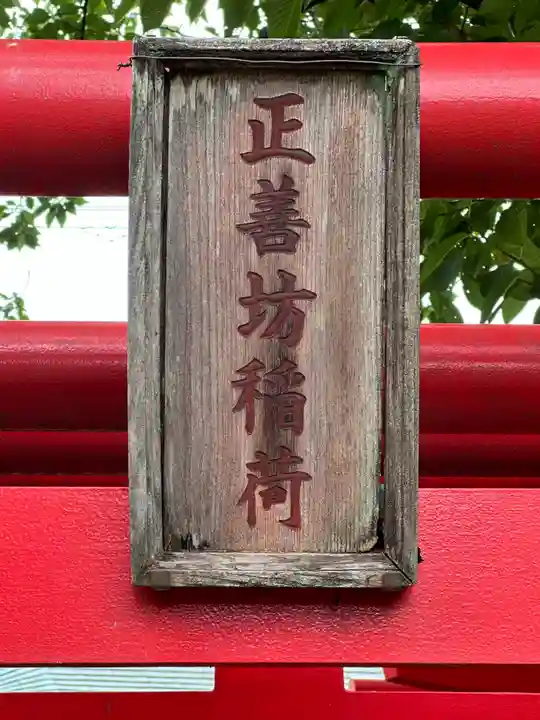 正善坊稲荷